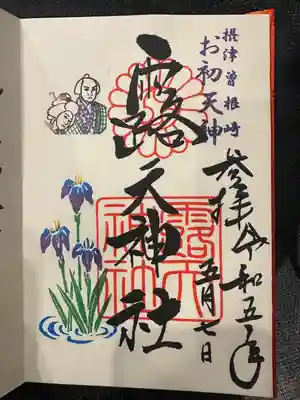 摂津曽根崎
お初天神
奉拝 令和五年
五月七日
露天神社